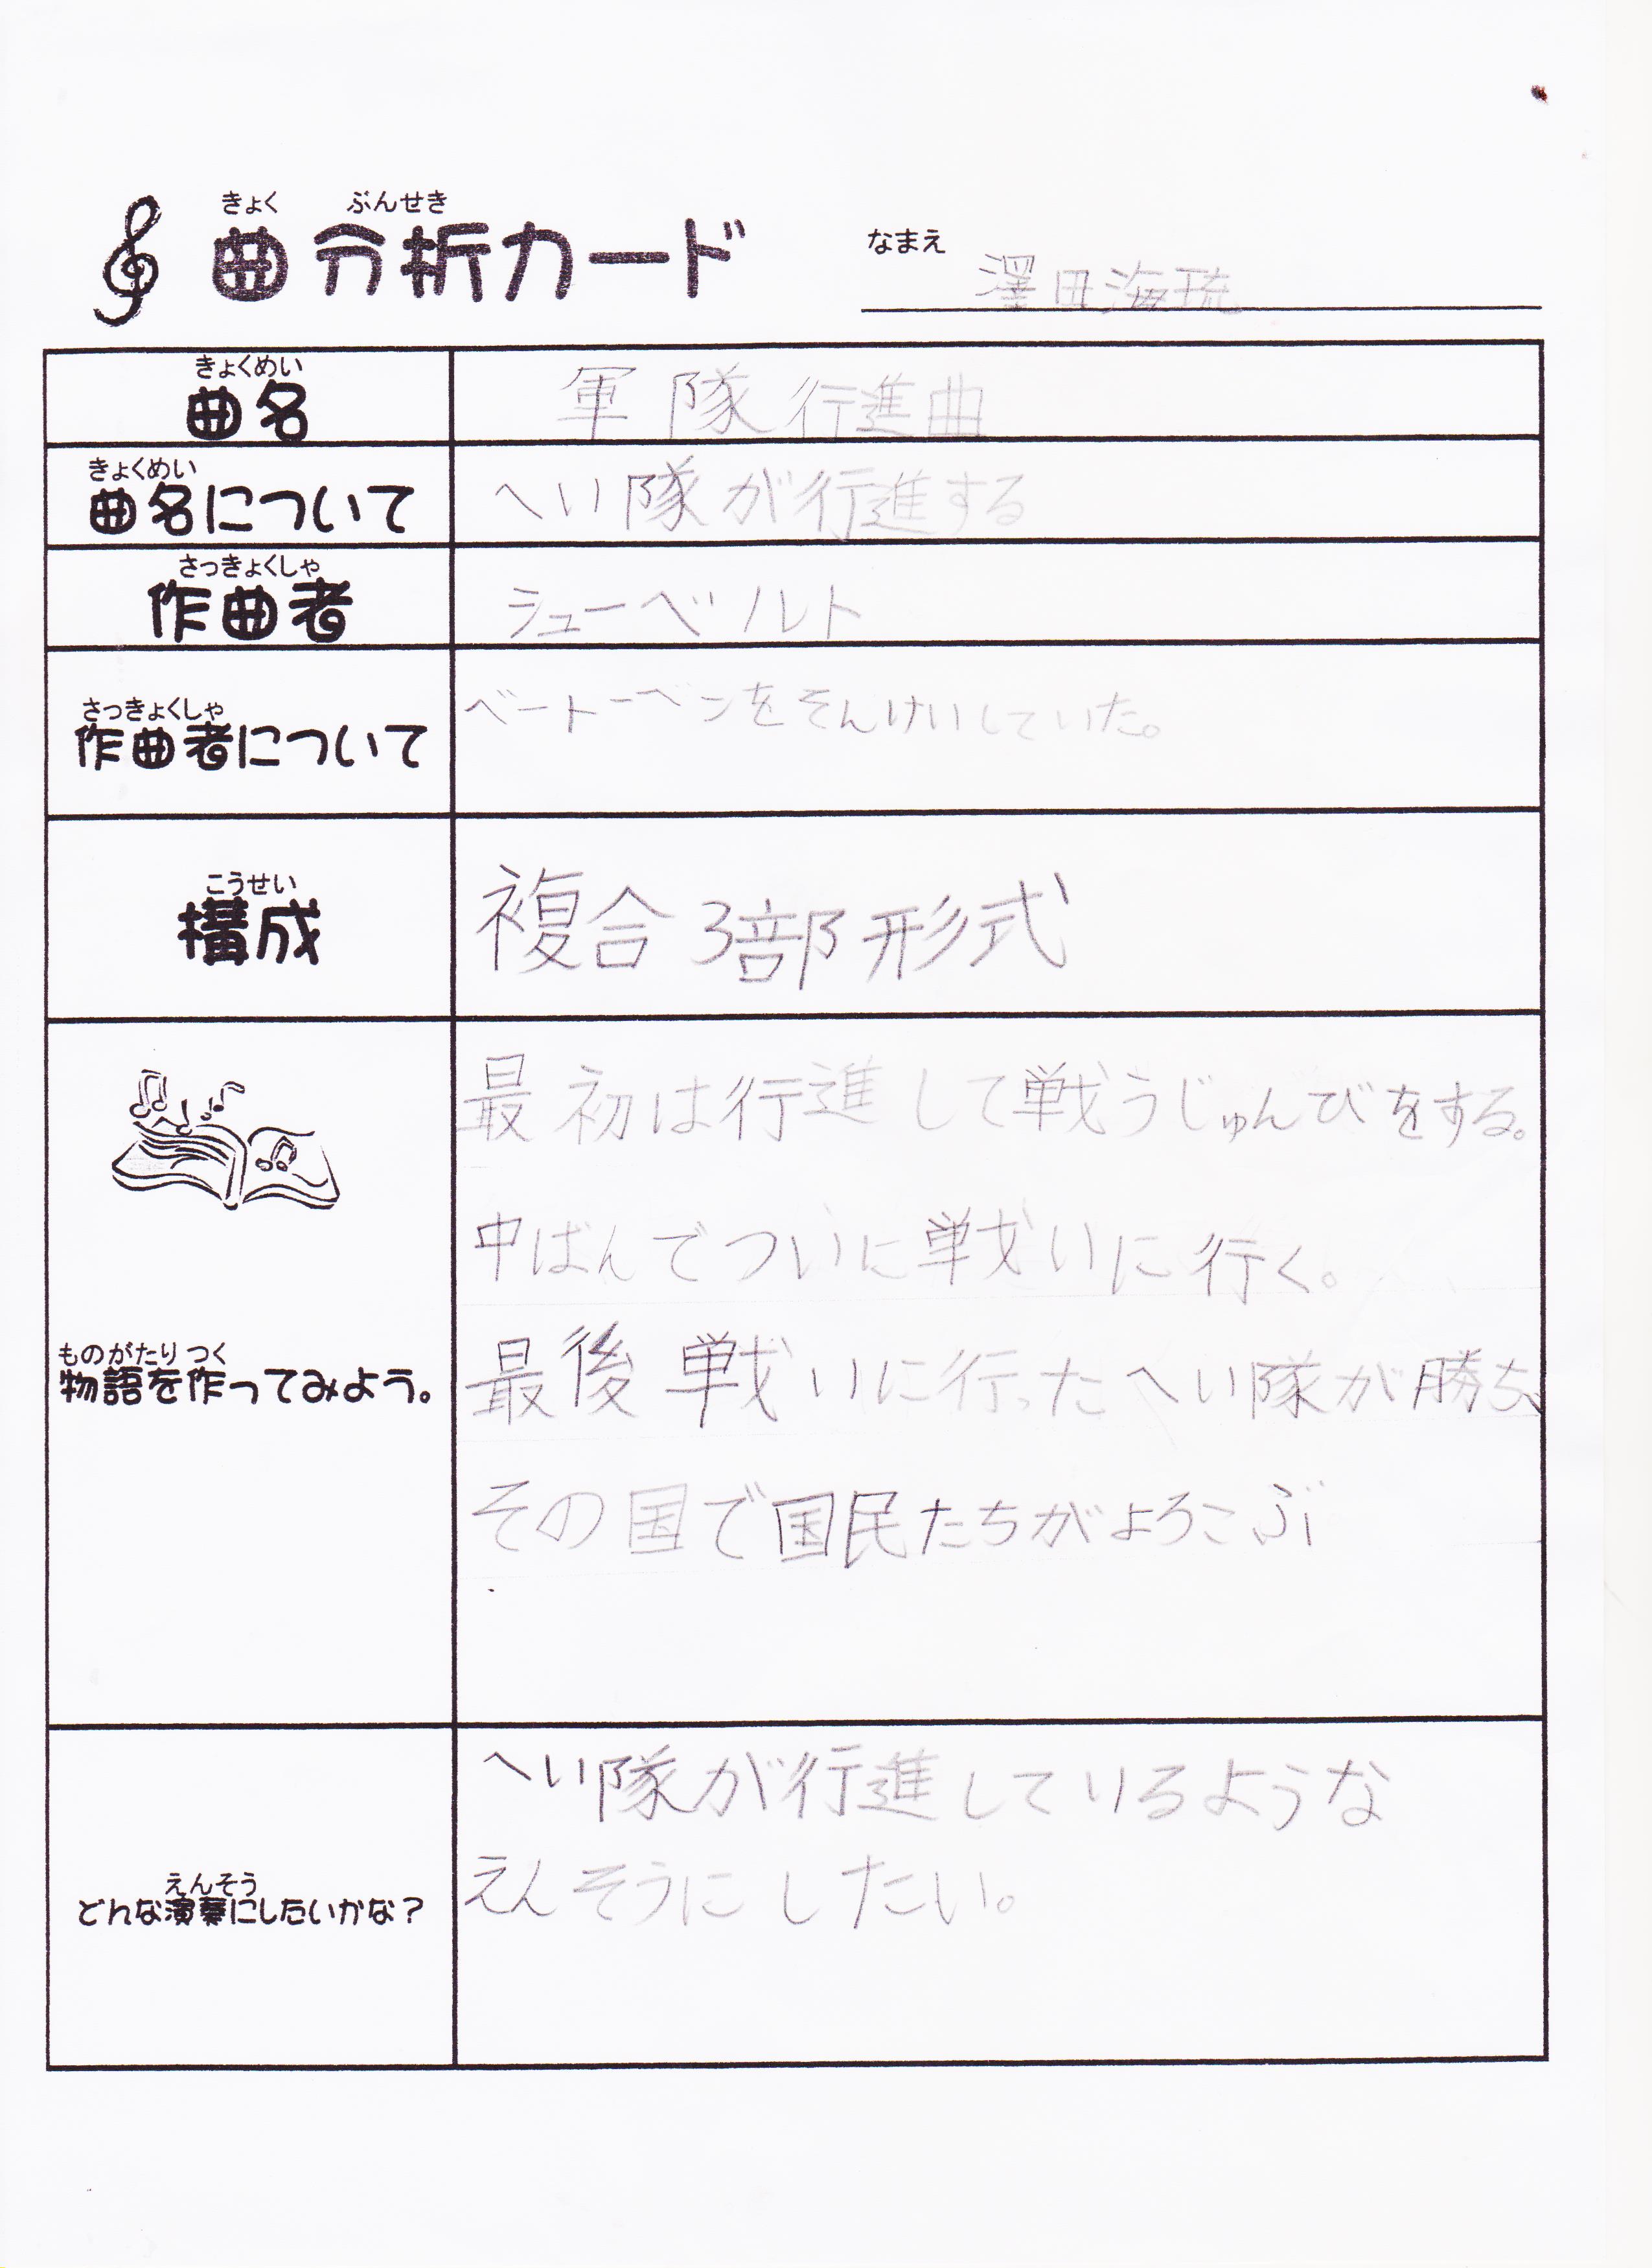 きょく ぶんせき
曲分析カード
なまえ
澤田海琉
きょくめい
曲名
軍隊行進曲
きょくめい
曲名について
へい隊が行進する
さっきょくしゃ
作曲者
シューベルト
さっきょくしゃ
作曲者について
ベートーベンをそんけいしていた。
こうせい
構成
複合3部形式
ものがたり つく
物語を作ってみよう。
最初は行進して戦うじゅんびをする。
中ばんでついに戦いに行く。
最後戦いに行ったへい隊が勝ち、
その国で国民たちがよろこぶ
えんそう
どんな演奏にしたいかな?
へい隊が行進しているような
えんそうにしたい。